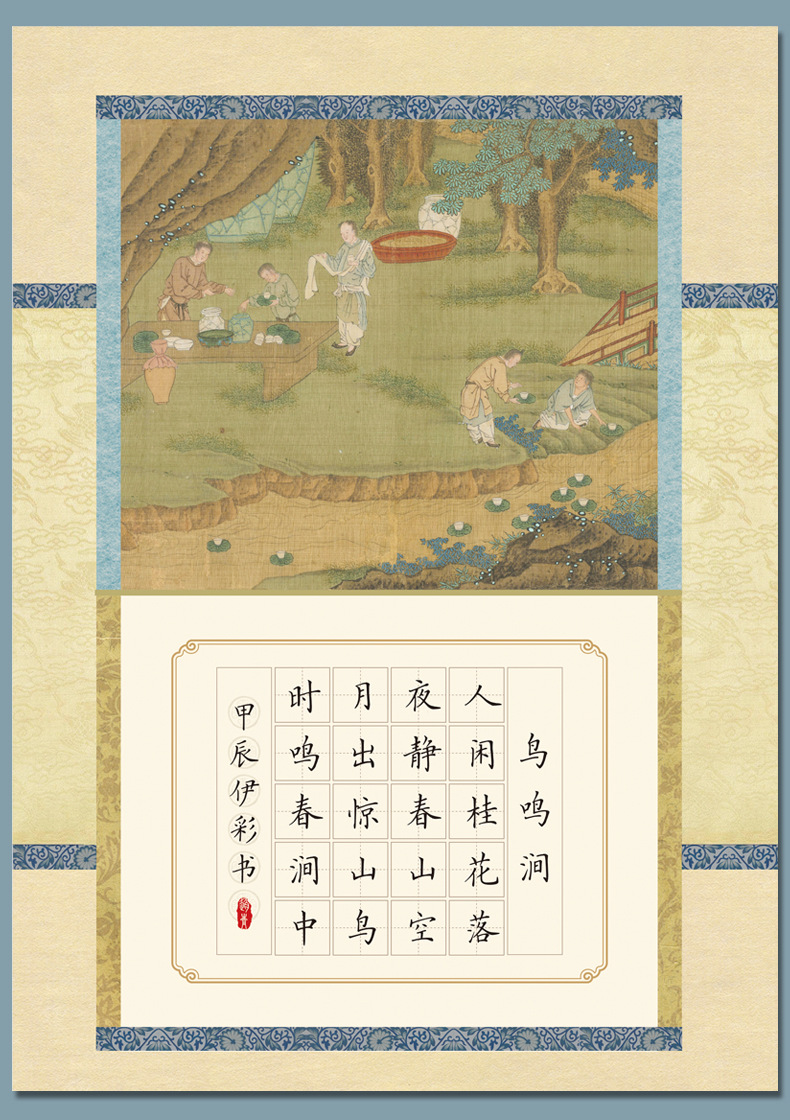 鸟鸣涧
人闲桂花落
夜静春山空
月出惊山鸟
时鸣春涧中
甲辰伊彩书